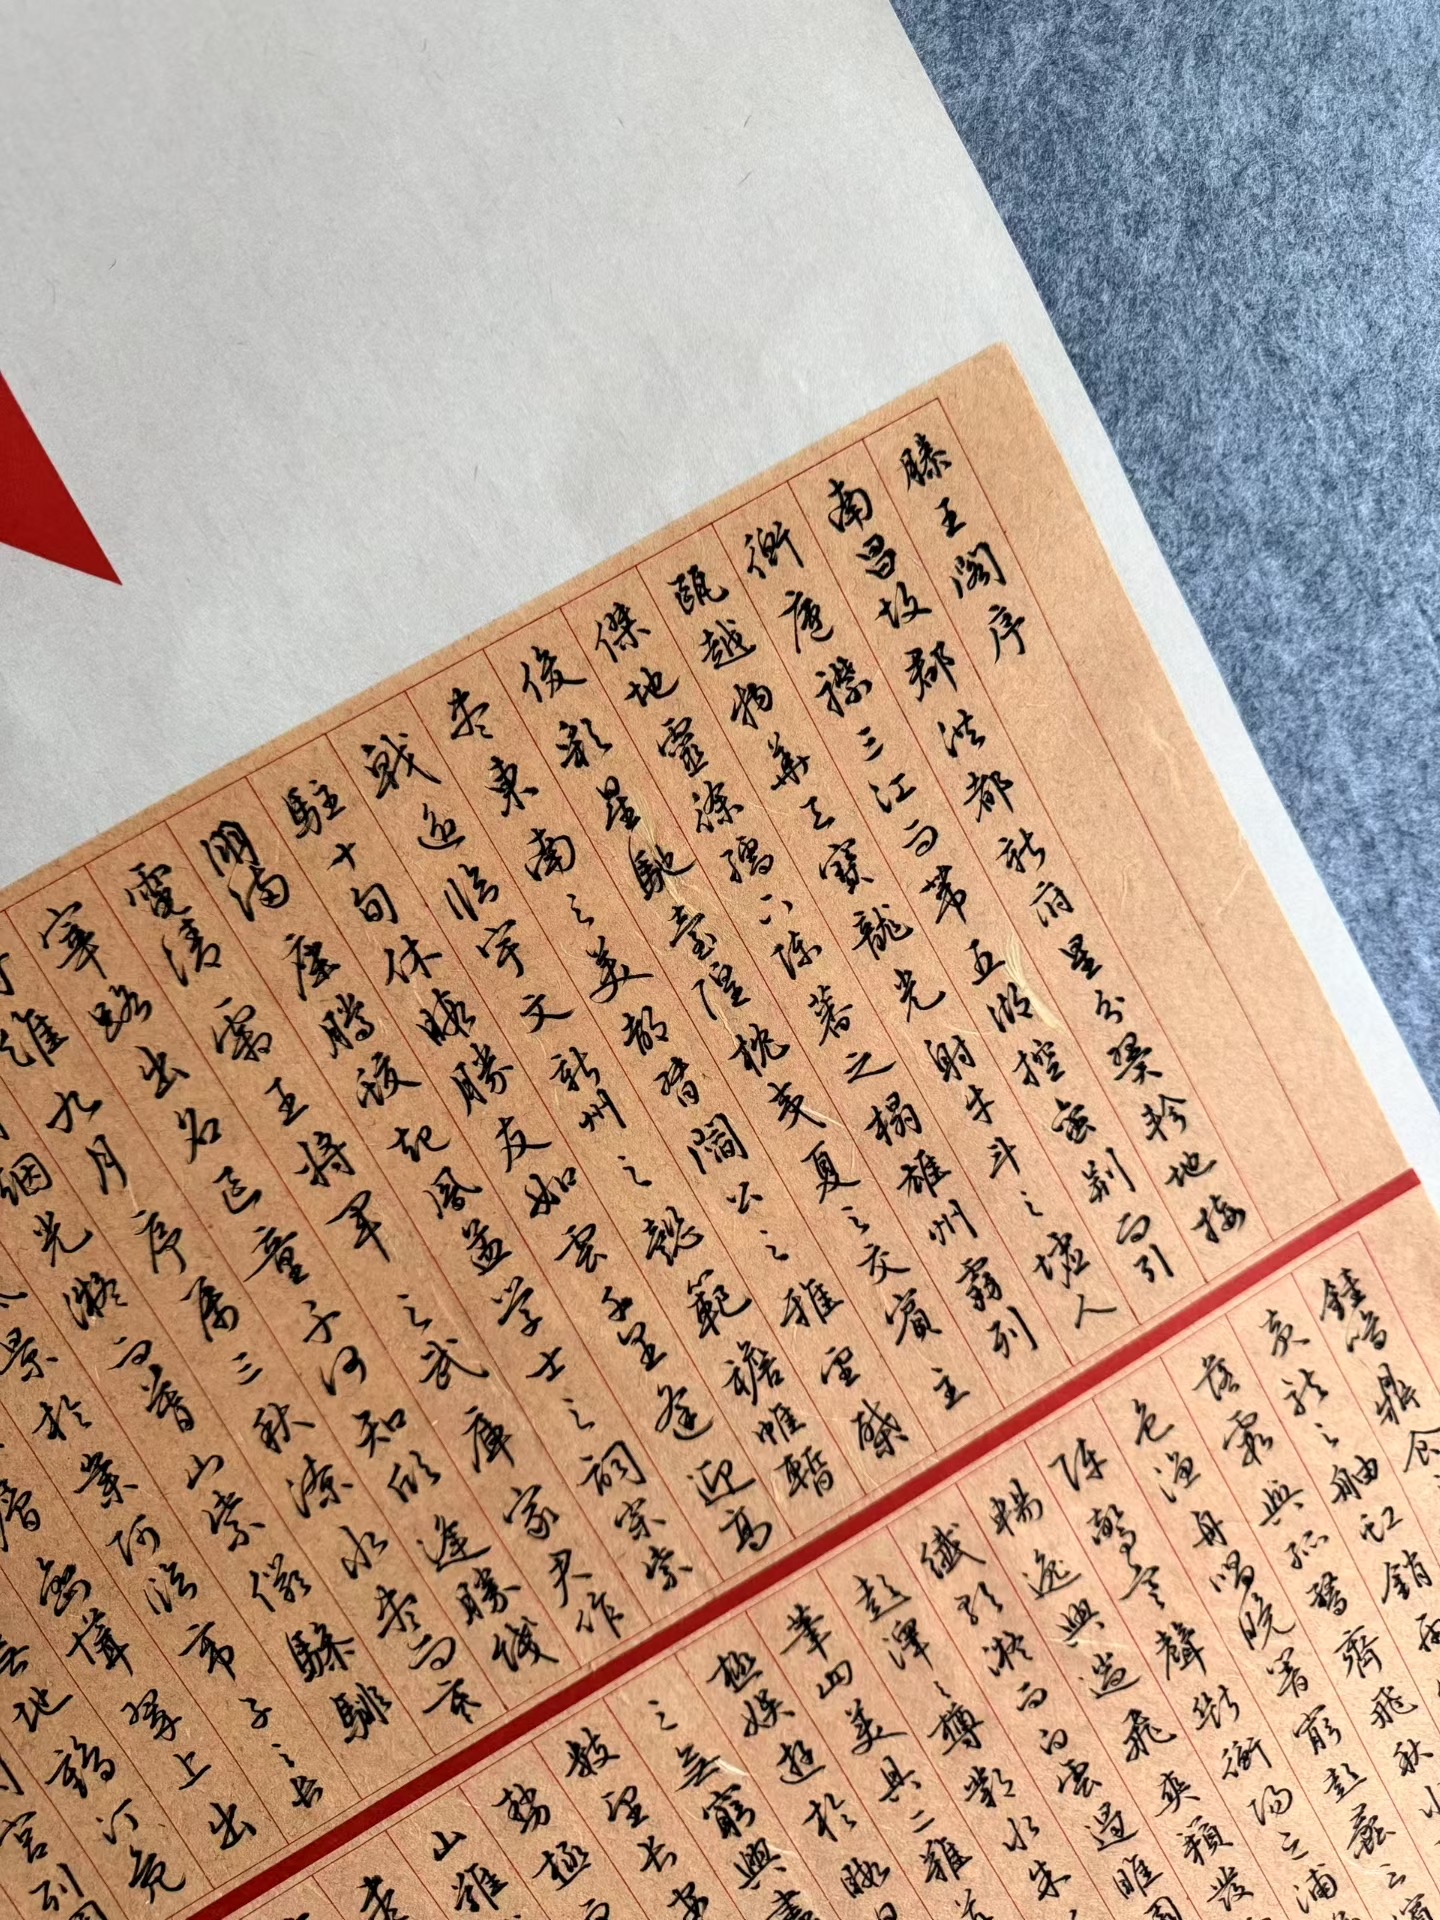 滕王閣序
南昌故郡洪都新府星分翼軫地接
衡廬襟三江而帶五湖控蠻荊而引
甌越物華天寶龍光射牛斗之墟人
傑地靈徐孺下陳蕃之榻雄州霧列
俊彩星馳臺隍枕夷夏之交賓主
盡東南之美都督閻公之雅望棨
戟遙臨宇文新州之懿範襜帷暫
駐十旬休暇勝友如雲千里逢迎高
朋滿座騰蛟起鳳孟學士之詞宗紫
電清霜王將軍之武庫家君作
宰路出名區童子何知躬逢勝餞
維九月序屬三秋潦水盡而寒
煙光凝而暮山紫儼驂騑
景於崇阿臨帝子之長
層巒聳翠上出
地鶴汀鳧
宮列岡
鐘鳴鼎食
黃龍之舳虹銷雨
落霞與孤鶩齊飛秋水
色漁舟唱晚響窮彭蠡之濱
陣驚寒聲斷衡陽之浦
暢逸興遄飛爽籟發
纖歌凝而白雲遏睢園
彭澤之樽鄴水朱
筆四美具二難
極娛遊於暇日
之無窮興盡
數望長安
勢極而
山難